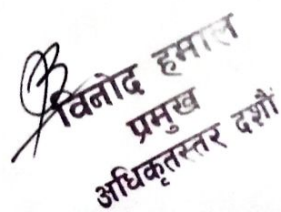 विनोद हमाल
प्रमुख
अधिकृतस्तर दशौं